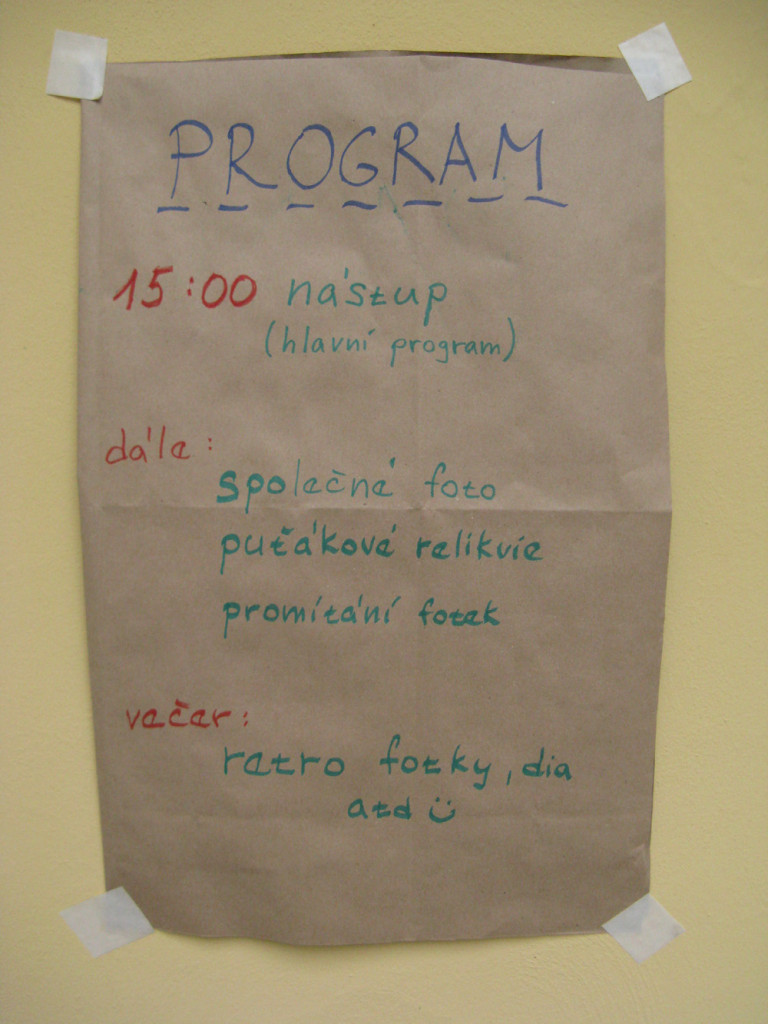 PROGRAM
15:00 nástup
(hlavní program)
dále:
společné foto
puťákové relikvie
promítání fotek
večer:
retro fotky, dia
atd ü